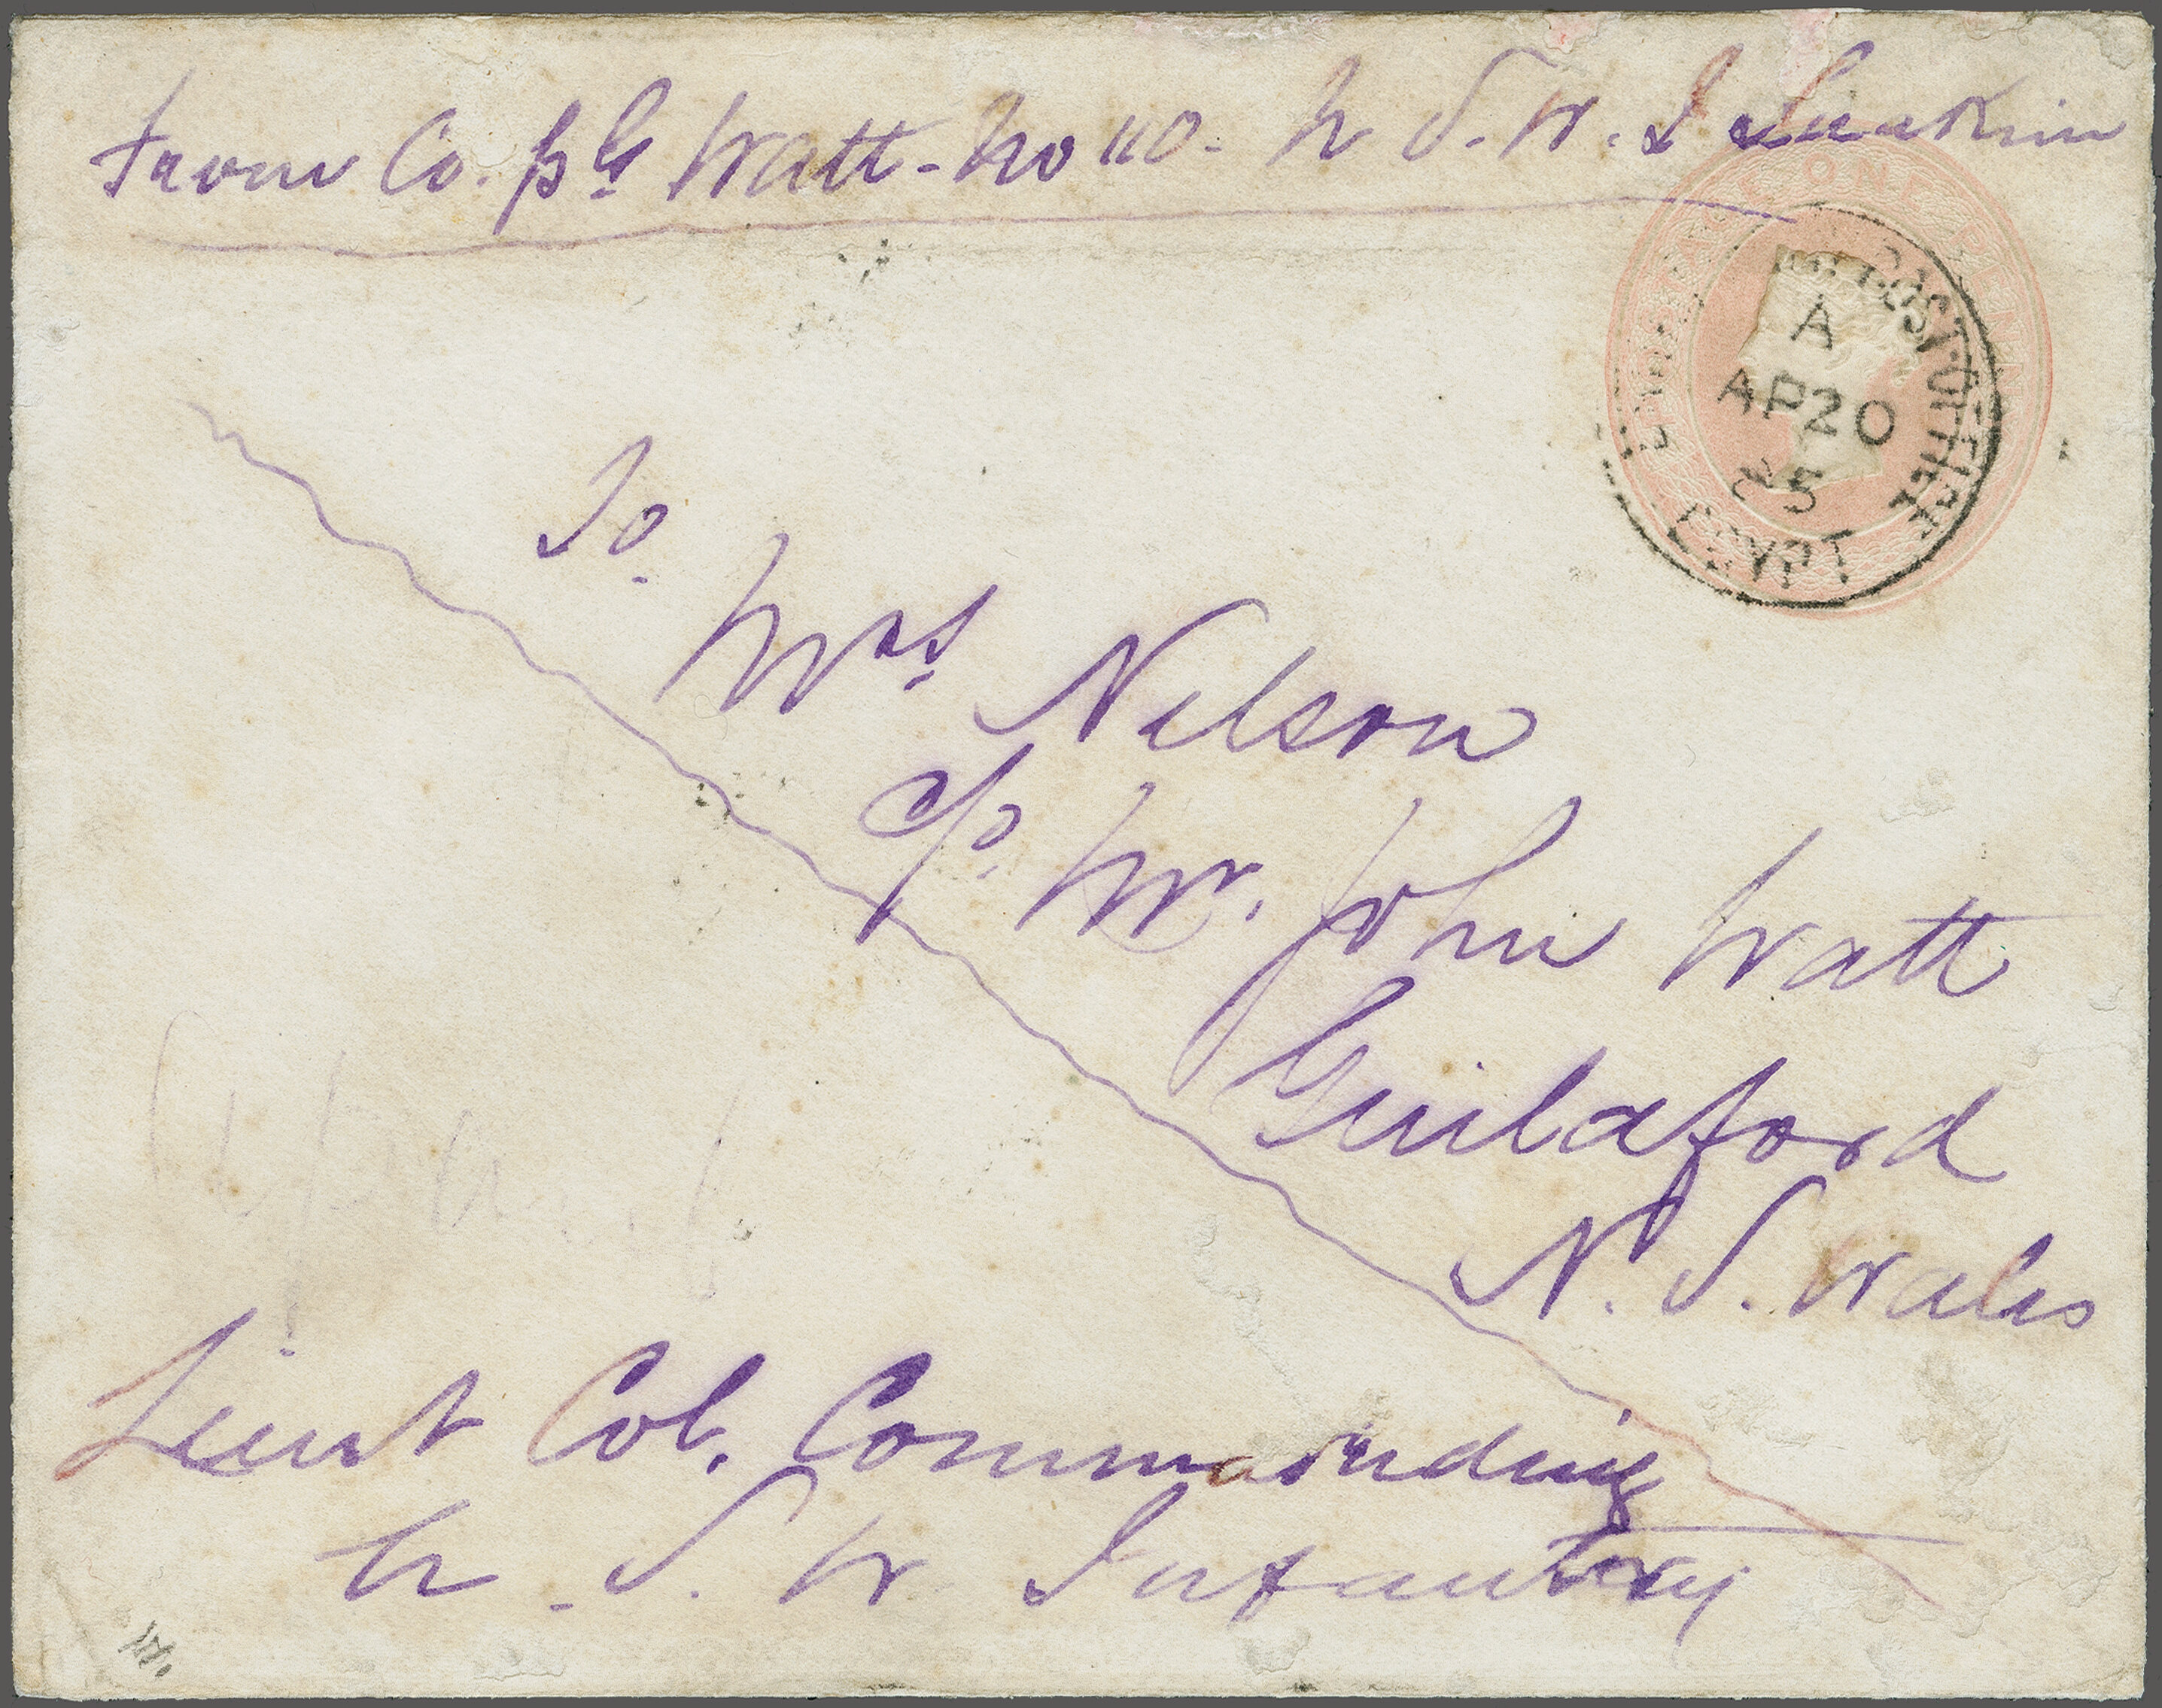 From Co. pl Watt - No 110. N S. W. I Suakin
POSTAGE ONE PENNY
POST OFFICE
A
AP 20
85
EGYPT
To
Mrs Nelson
c/o Mr. John Watt
Guildford
N. S. Wales
Lieut Col. Commanding
N. S. W Infantry